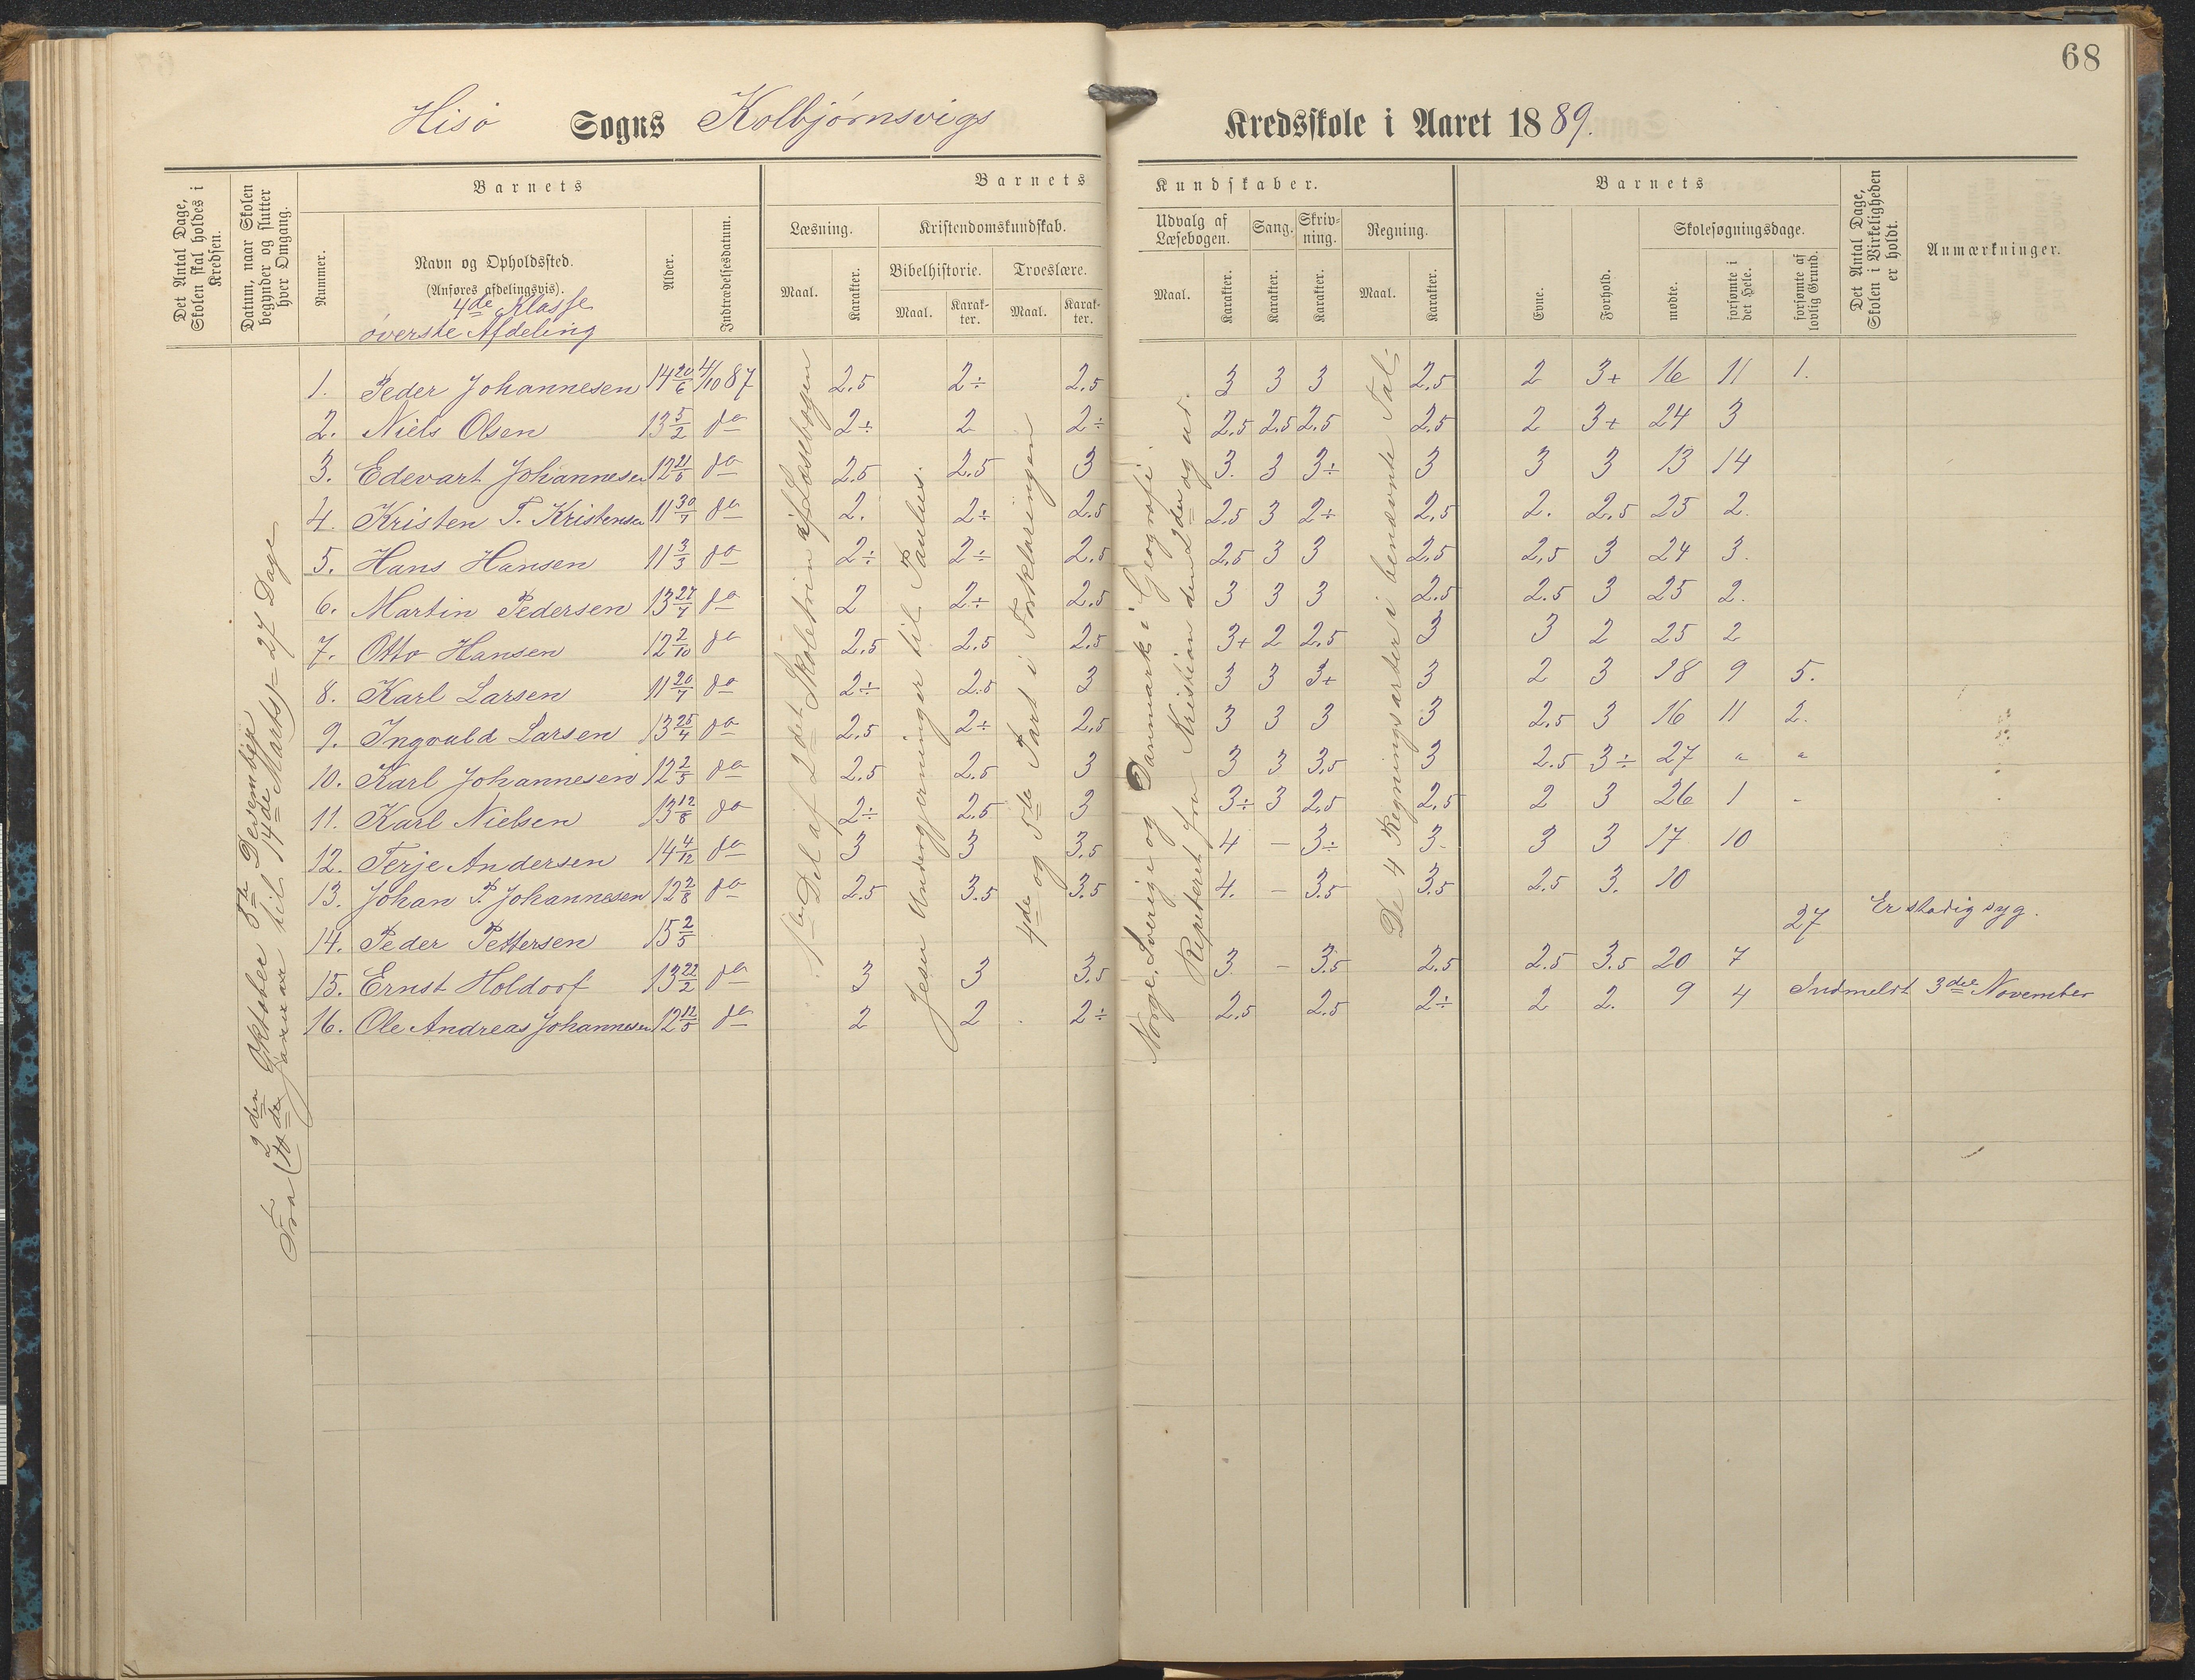 68
Hisø Sogns Kolbjørnsvigs Kredsskole i Aaret 1889.
Det Antal Dage, Skolen skal holdes i Kredsen.
Datum, naar Skolen begynder og slutter hver Omgang.
Barnets
Nummer.
Navn og Opholdssted.
(Anføres afdelingsvis).
4de Klasse
øverste Afdeling
Alder.
Indtrædelsesdatum.
Barnets Kundskaber.
Læsning.
Maal. Karakter.
Kristendomskundskab.
Bibelhistorie. Troeslære.
Maal. Karakter. Maal. Karakter.
Udvalg af Læsebogen. Sang. Skrivning. Regning.
Maal. Karakter. Karakter. Karakter. Maal. Karakter.
Barnets
Evne. Forhold.
Skolesøgningsdage.
mødte. forsømte i det Hele. forsømte af lovlig Grund.
Det Antal Dage, Skolen i Virkeligheden er holdt.
Anmærkninger.
Fra 2den Oktober 5te Desember
Januar til 14de Marts = 27 Dage
1ste Del af 2det Skoletrin af Læsebogen
Jesu Undergjerninger til Paulus.
4de og 5te Part i Forklaringen
Norge, Sverige og Danmark i Geografi.
Repeteret fra Kristian den 2den og ud.
De 4 Regningsarter i benævnte Tal.
1. Peder Johannesen 14 20/6 4/10 87 2.5 2÷ 2.5 3 3 3 2.5 2 3+ 16 11 1.
2. Niels Olsen 13 5/2 do 2÷ 2 2÷ 2.5 2.5 2.5 2.5 2 3+ 24 3
3. Edevart Johannesen 12 21/6 do 2.5 2.5 3 3. 3 3÷ 3 3 3 13 14
4. Kristen T. Kristensen 11 30/7 do 2. 2÷ 2.5 2.5 3 2÷ 2.5 2. 2.5 25 2.
5. Hans Hansen 11 3/3 do 2÷ 2÷ 2.5 2.5 3 3 2.5 2.5 3 24 3.
6. Martin Pedersen 13 27/7 do 2 2÷ 2.5 3 3 3 2.5 2.5 3 25 2.
7. Otto Hansen 12 2/10 do 2.5 2.5 2.5 3+ 2 2.5 3 3 2 25 2
8. Karl Larsen 11 20/7 do 2÷ 2.5 3 3 3 3+ 3 2 3 18 9 5.
9. Ingvald Larsen 13 25/4 do 2.5 2÷ 2.5 3 3 3 3 2.5 3 16 11 2.
10. Karl Johannesen 12 2/5 do 2.5 2.5 3 3 3 3.5 3 2.5 3÷ 27 " "
11. Karl Nielsen 13 12/8 do 2÷ 2.5 3 3÷ 3 2.5 2.5 2 3 26 1 -
12. Terje Andersen 14 4/12 do 3 3 3.5 4 - 3÷ 3- 3 3 17 10
13. Johan P. Johannesen 12 2/8 do 2.5 3.5 3.5 4. - 3.5 3.5 2.5 3. 10
14. Peder Pettersen 15 2/5 27 Er stadig syg.
15. Ernst Holdorf 13 22/2 do 3 3 3.5 3 - 3.5 2.5 2.5 3.5 20 7
16. Ole Andreas Johannesen 12 12/5 do 2 2 2÷ 2.5 2.5 2÷ 2 2. 9 4 Indmeldt 3die November